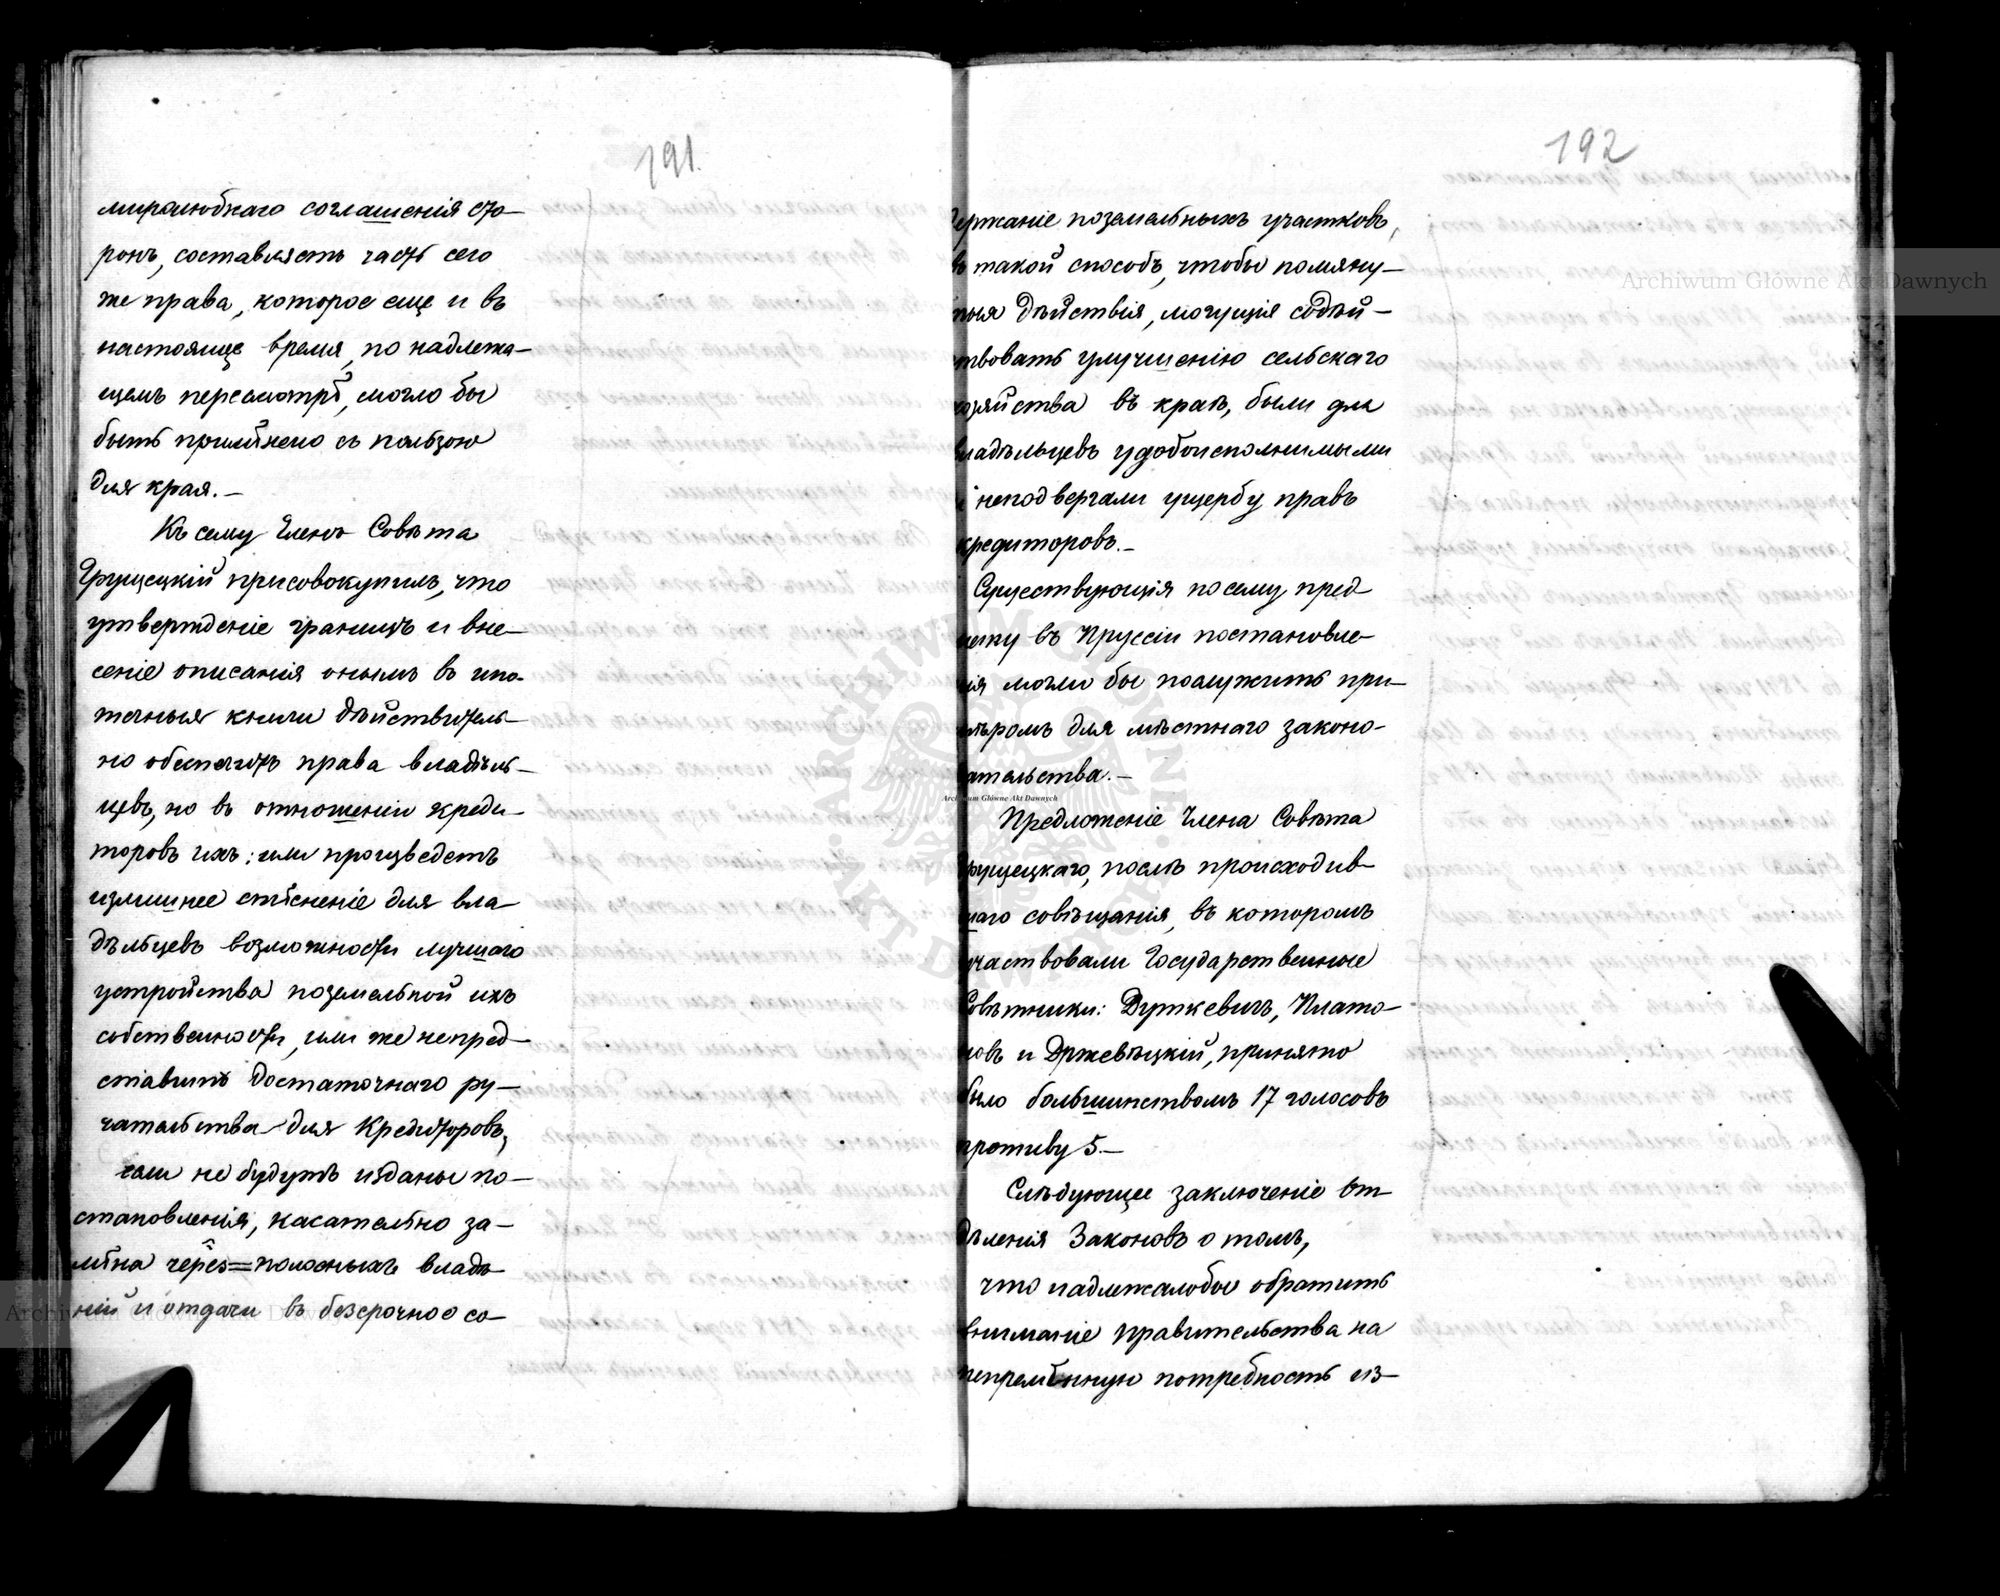 191.
миролюбнаго соглашенія сто—
ронъ, составляетъ часть сего
же права, которое еще и въ
настояще время, по надлежа—
щемъ пересмотрѣ, могло бы
быть примѣнено съ пользою
для края.—
Къ сему Членъ Совѣта
Грущецкій присовокупилъ, что
утвержденіе границъ и вне—
сеніе описанія онымъ въ ипо-
течныя книги дѣйствитель—
но обеспечитъ права владѣль—
цевъ, но въ отношеніи креди—
торовъ ихъ: или произведетъ
излишнее стѣсненіе для вла—
дѣльцевъ возможности лучшаго
устройства поземельной ихъ
собственности, или же непред—
ставитъ достаточнаго ру—
чательства для Кредиторовъ,
если не будутъ изданы по—
становленія, касательно за—
мѣна черезъ=положныхъ владѣ
ній и отдачи въ безсрочное со—
192
держаніе поземельныхъ участковъ,
въ такой способъ, чтобы помяну—
тыя дѣйствія, могущія содѣй—
ствовать улучшенію сельскаго
хозяйства въ краѣ, были для
владѣльцевъ удобоисполнимыми
и неподвергали ущербу правъ
кредиторовъ.—
Существующія по сему пред
мету въ Пруссіи постановле—
нія могли бы послужить при—
мѣромъ для мѣстнаго законо-
дательства.—
Предложеніе Члена Совѣта
Грущецкаго, послѣ происходив—
шаго совѣщанія, въ которомъ
участвовали Государственные
Совѣтники: Дуткевичъ, Плато—
новъ и Држевѣцкій, принято
было большинствомъ 17 голосовъ
противу 5.—
Слѣдующее заключеніе От—
дѣленія Законовъ о томъ,
что надлежалобы обратить
вниманіе Правительства на
непремѣнную потребность из—
Archiwum Główne Akt Dawnych
Archiwum Główne Akt Dawnych
ARCHIWUM GŁÓWNE AKT DAWNYCH
Archiwum Główne Akt Dawnych